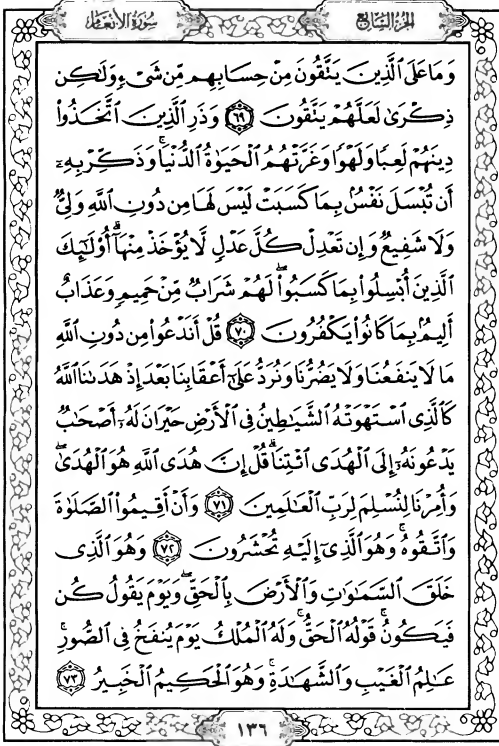 الجزء السابع
سورة الأنعام
وَمَا عَلَى الَّذِينَ يَتَّقُونَ مِنْ حِسَابِهِم مِّن شَيْءٍ وَلَٰكِن
ذِكْرَىٰ لَعَلَّهُمْ يَتَّقُونَ ٦٩ وَذَرِ الَّذِينَ اتَّخَذُوا
دِينَهُمْ لَعِبًا وَلَهْوًا وَغَرَّتْهُمُ الْحَيَوٰةُ الدُّنْيَا ۚ وَذَكِّرْ بِهِۦٓ
أَن تُبْسَلَ نَفْسٌۢ بِمَا كَسَبَتْ لَيْسَ لَهَا مِن دُونِ اللَّهِ وَلِيٌّ
وَلَا شَفِيعٌ وَإِن تَعْدِلْ كُلَّ عَدْلٍ لَّا يُؤْخَذْ مِنْهَآ ۗ أُو۟لَٰٓئِكَ
الَّذِينَ أُبْسِلُوا بِمَا كَسَبُوا ۖ لَهُمْ شَرَابٌ مِّنْ حَمِيمٍ وَعَذَابٌ
أَلِيمٌۢ بِمَا كَانُوا يَكْفُرُونَ ٧٠ قُلْ أَنَدْعُوا مِن دُونِ اللَّهِ
مَا لَا يَنفَعُنَا وَلَا يَضُرُّنَا وَنُرَدُّ عَلَىٰٓ أَعْقَابِنَا بَعْدَ إِذْ هَدَىٰنَا اللَّهُ
كَالَّذِى اسْتَهْوَتْهُ الشَّيَٰطِينُ فِى الْأَرْضِ حَيْرَانَ لَهُۥٓ أَصْحَٰبٌ
يَدْعُونَهُۥٓ إِلَى الْهُدَى ائْتِنَا ۗ قُلْ إِنَّ هُدَى اللَّهِ هُوَ الْهُدَىٰ ۖ
وَأُمِرْنَا لِنُسْلِمَ لِرَبِّ الْعَٰلَمِينَ ٧١ وَأَنْ أَقِيمُوا الصَّلَوٰةَ
وَاتَّقُوهُ ۚ وَهُوَ الَّذِىٓ إِلَيْهِ تُحْشَرُونَ ٧٢ وَهُوَ الَّذِى
خَلَقَ السَّمَٰوَٰتِ وَالْأَرْضَ بِالْحَقِّ ۖ وَيَوْمَ يَقُولُ كُن
فَيَكُونُ ۚ قَوْلُهُ الْحَقُّ ۚ وَلَهُ الْمُلْكُ يَوْمَ يُنفَخُ فِى الصُّورِ ۚ
عَٰلِمُ الْغَيْبِ وَالشَّهَٰدَةِ ۚ وَهُوَ الْحَكِيمُ الْخَبِيرُ ٧٣
١٣٦